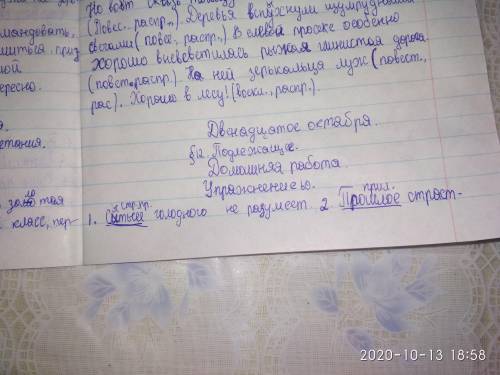 мандовать,
шиться, приз
ной
ересно.
я.
етания.
за тая
класс, пер-
Но вот сквозь
(Повес., распр.). Деревья вспухнули изумрудными
свечами (повес., распр.). В слева просеке особенно
хорошо высветилась рыжая глинистая дорога
(повст. распр.). На ней зеркальца луж (повест.,
рас). Хорошо в лесу! (воскл., распр.).
Двенадцатое октября.
§12. Подлежащее.
Домашняя работа.
Упражнение 60.
стр. пр. прил.
1. Сытый голодного не разумеет. 2 Прошлое страст-
2020-10-13 18:58